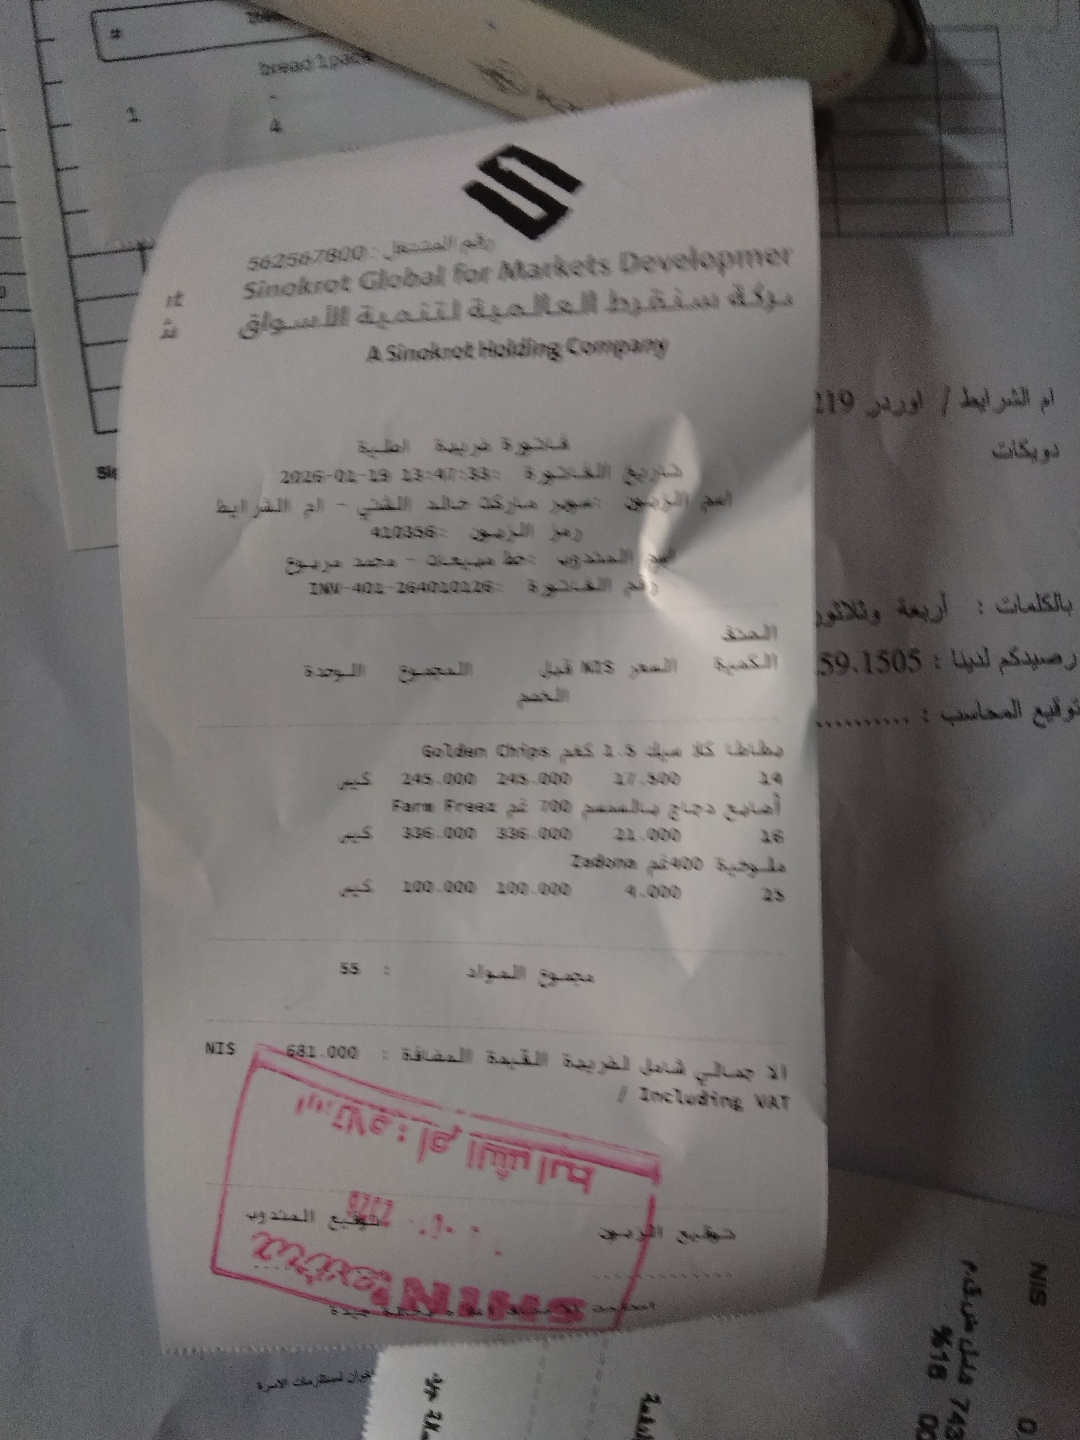 رقم المشتغل : 562567800
Sinokrot Global for Markets Developmer
nt
شركة سنقرط العالمية لتنمية الأسواق
A Sinokrot Holding Company
فاتورة ضريبة اصلية
تاريخ الفاتورة :2026-01-19 13:47:33
اسم الزبون :سوبر ماركت خالد - ام الشرايط
رمز الزبون :410356
اسم المندوب :خط مبيعات - محمد مربوع
رقم الفاتورة :INV-401-264010126
الصنف
الكمية السعر NIS قبل المجموع الوحدة
الخصم
بطاطا كلاسيك 2.5 كغم Golden Chips
14 17.500 245.000 245.000 كيس
أصابع دجاج بالسمسم 700 غم Farm Freez
16 21.000 336.000 336.000 كيس
ملوخية 400غم Zadona
25 4.000 100.000 100.000 كيس
مجموع المواد : 55
الاجمالي شامل لضريبة القيمة المضافة : 681.000 NIS
/ Including VAT
توقيع الزبون توقيع المندوب
استلام : ام الشرايط
2026
#
bread 1 pack
1
4
ام الشرايط / اوردر 219
دويكات
بالكلمات : أربعة وثلاثون
رصيدكم لدينا : 59.1505
توقيع المحاسب : ..........
NIS
%16
743